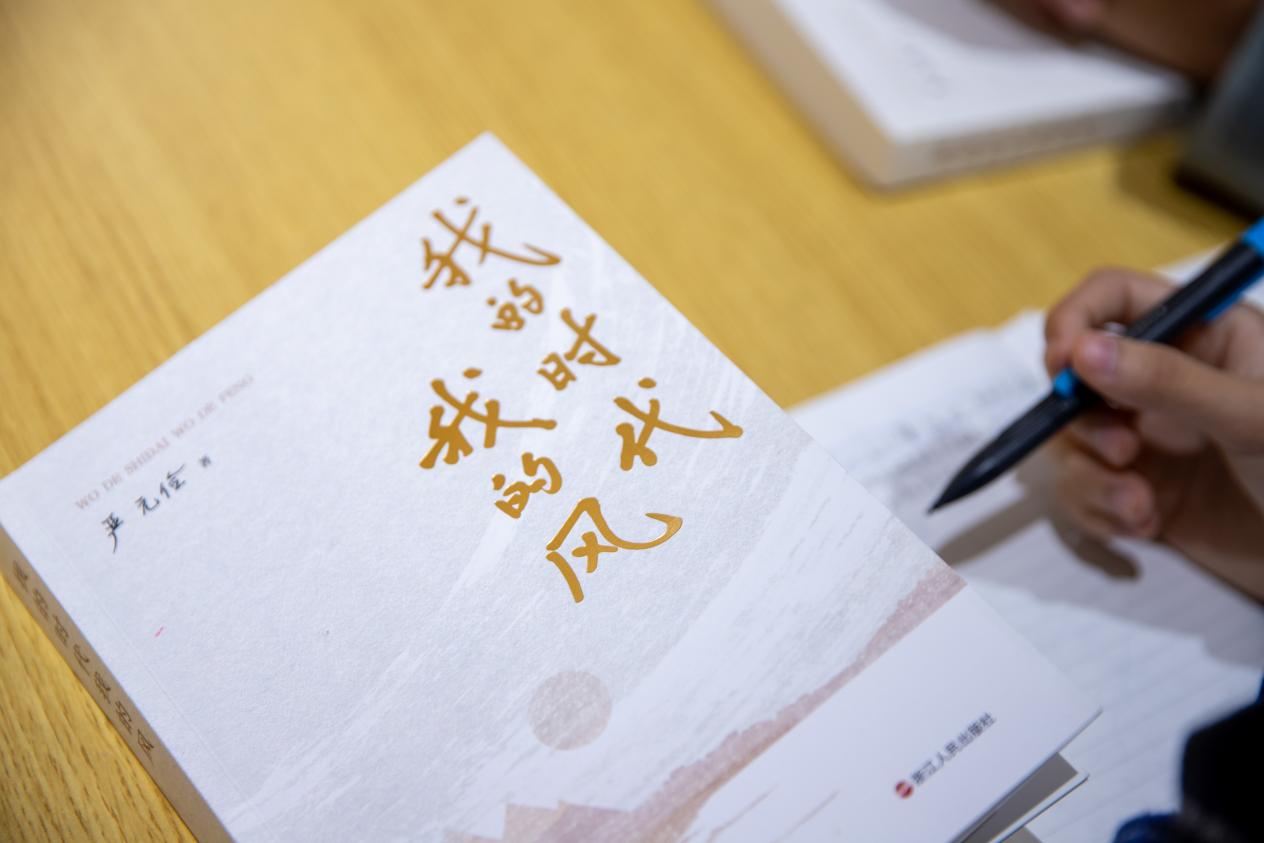 我的时代
我的风
WO DE SHIDAI WO DE FENG
严元俭 著
浙江人民出版社
我的时代我的风